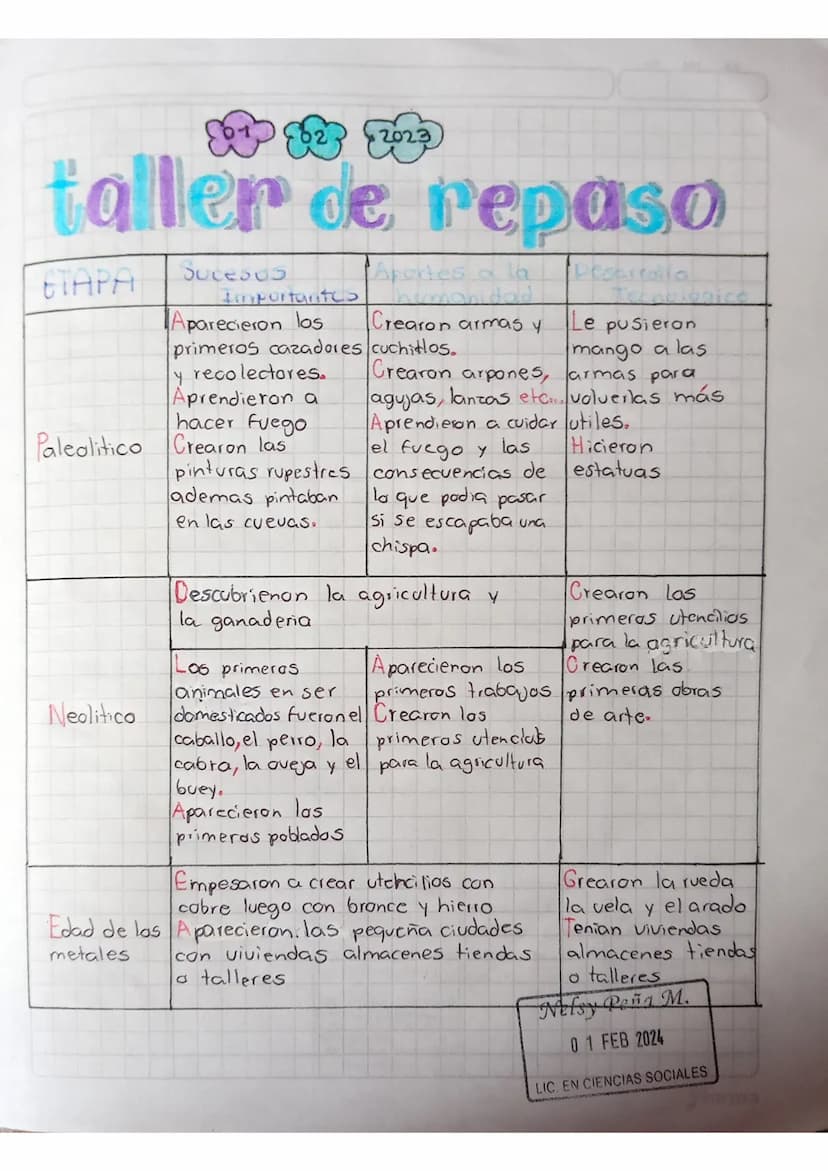 01 02 2023
taller de repaso
ETAPA
Sucesos
Importantes
Aportes a la
humanidad
Desarrollo
Tecnologico
Paleolitico
Aparecieron los
primeros cazadores
y recolectores.
Aprendieron a
hacer fuego
Crearon las
pinturas rupestres
ademas pintaban
en las cuevas.
Crearon armas y
cuchillos.
Crearon arpones,
agujas, lanzas etc...
Aprendieron a cuidar
el fuego y las
consecuencias de
lo que podia pasar
si se escapaba una
chispa.
Le pusieron
mango a las
armas para
volverlas más
utiles.
Hicieron
estatuas
Neolitico
Descubrieron la agricultura y
la ganaderia
Los primeros
animales en ser
domesticados fueron el
caballo, el perro, la
cabra, la oveja y el
buey.
Aparecieron los
primeros poblados
Aparecieron los
primeros trabajos
Crearon los
primeros utencilios
para la agricultura
Crearon los
primeros utencilios
para la agricultura
Crearon las
primeras obras
de arte.
Edad de los
metales
Empesaron a crear utencilios con
cobre luego con bronce y hierro
Aparecieron las pequeña ciudades
con viviendas almacenes tiendas
o talleres
Crearon la rueda
la vela y el arado
Tenian viviendas
almacenes tiendas
o talleres
Nelsy Peña M.
01 FEB 2024
LIC. EN CIENCIAS SOCIALES